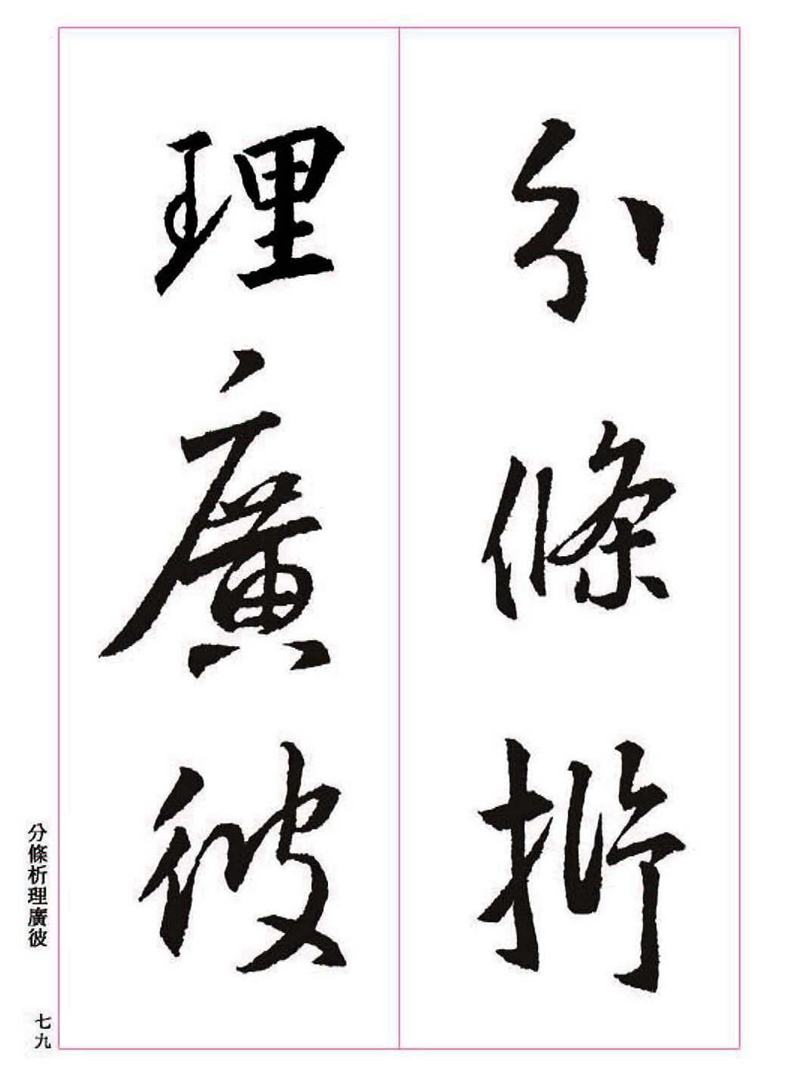 分條析
理廣彼
分條析理廣彼
七九